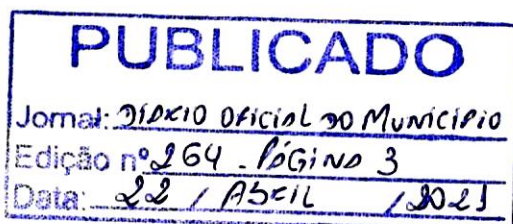 PUBLICADO
Jornal: DIÁRIO OFICIAL DO MUNICÍPIO
Edição nº 264 - PÁGINA 3
Data: 22 / ABRIL / 2021